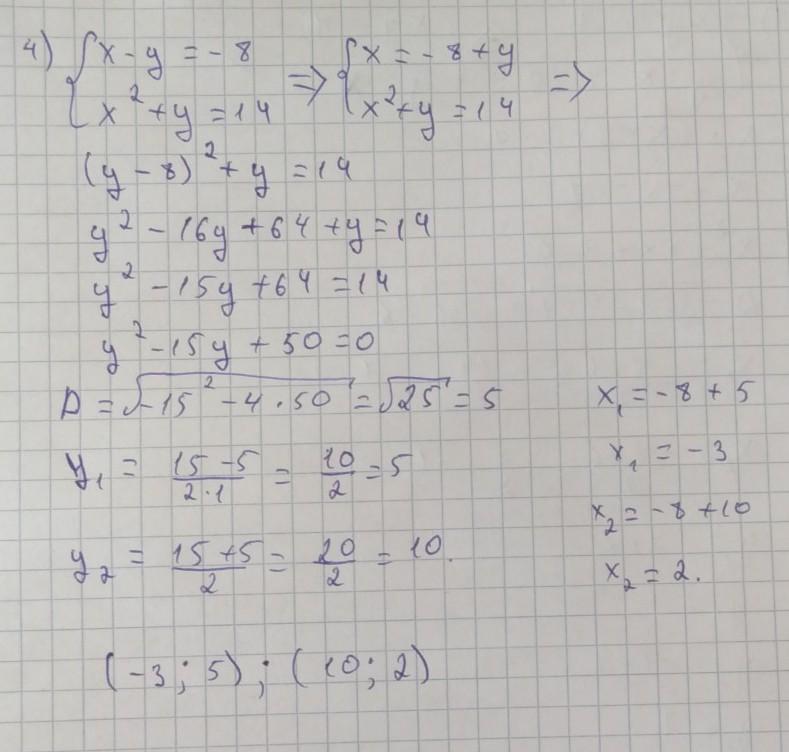 4) { x - y = - 8 => { x = - 8 + y =>
{ x² + y = 14 { x² + y = 14
(y - 8)² + y = 14
y² - 16y + 64 + y = 14
y² - 15y + 64 = 14
y² - 15y + 50 = 0
D = √(-15² - 4 · 50) = √25 = 5
y₁ = (15 - 5)/(2 · 1) = 10/2 = 5
y₂ = (15 + 5)/2 = 20/2 = 10.
x₁ = - 8 + 5
x₁ = - 3
x₂ = - 8 + 10
x₂ = 2.
(-3; 5); (10; 2)